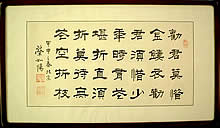 勸君莫惜
金縷衣勸
君惜取少
年時花開
堪折直須
折莫待無
花空折枝
甲申之春